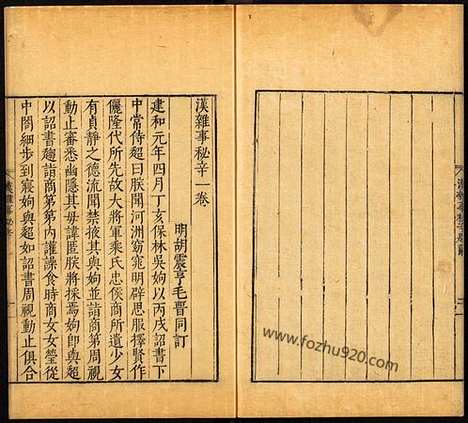 漢雜事秘辛一卷
明胡震亨毛晋同訂
建和元年四月丁亥保林吳姁以丙戌詔書下
中常侍超曰朕聞河洲窈窕明辟思服擇賢作
儷隆代所先故大將軍乘氏忠侯商所遺少女
有貞靜之德流聞禁掖其與姁並詣商第周視
動止審悉幽隱其毋諱匿朕將採焉姁卽與超
以詔書趨詣商第第内讙譟食時商女女瑩從
中閤細步到寢姁與超如詔書周視動止俱合
www.fozhu920.com